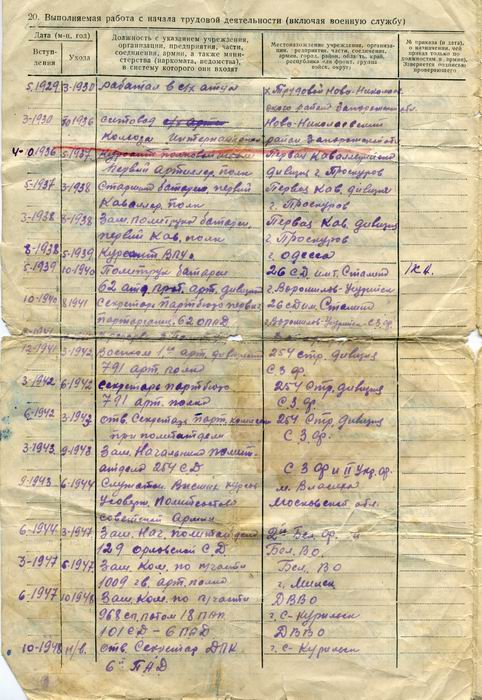 20. Выполняемая работа с начала трудовой деятельности (включая военную службу)
Дата (м-ц, год)
Вступления
Ухода
Должность с указанием учреждения, организации, предприятия, части, соединения, армии, а также министерства (наркомата, ведомства), в систему которого они входят
Местонахождение учреждения, организации, предприятия, части, соединения, армии, город, район, область, край, республика или фронт, группа войск, округ
№ приказа (и дата), о назначении, чей приказ только по должностям в армии). Заверяется подписью проверяющего
5.1929 3-1930 работал в с/х х. Трудовой Ново-Николаевского района Запорожской обл.
3-1930 10 1936 счетовод
Колхоза Интернационал Ново-Николаевский район Запорожской обл.
4-10.1936 5-1937 Курсант полковой школы Первая Кавалерийская
Первый артиллер. полк дивиз. г. Проскуров
5-1937 3-1938 Старшина батареи первый Первая Кав. дивизия
Кавалер. полк г. Проскуров
3-1938 8-1938 Зам. политрука батареи, Первая Кав. дивизия
первый Кав. полк г. Проскуров
8-1938 5-1939 Курсант ВПУ г. Одесса
5-1939 10-1940 Политрук батареи 26 СД им. т. Сталина
62 г. Ворошилов-Уссурийск
10-1940 8 1941 Секретарь Партбюро 26 СД им. Сталина
парторганиз. 62 ОПАД г. Ворошилов-
12-1941 3-1942 Военком 1го арт. дивизиона 254 стр. дивизия
791 арт. полка С З. ф.
3-1942 6-1942 секретарь партбюро 254 Стр. дивизия
791 арт. полка С. З. ф.
6-1942 3-1943 отв. Секретарь Парт. комиссии 254 Стр. дивизия
при политотделе С З. фр.
3-1943 9-1943 Зам. Начальника политотдела 254 СД С З ф и II Укр. фр.
9-1943 6-1944 Слушатель Высших курсов м. Власиха
Усоверш. Политсостава Московской обл.
советской Армии
6-1944 3-1947 Зам. Нач. политотдела 2й Бел. фр. и
129 орловской С. Д. Бел. ВО.
3-1947 6-1947 Зам. Ком. по п/части Бел. ВО
1009 гв. арт. полка г. Минск
6-1947 10 1948 Зам. Ком. по п/части ДВВО
968 сп, потом 18 ПАП г. С-Курильск
101 СД - 6 ПАД ДВВО
10-1948 н/в. отв Секретарь ДПК г. С-Курильск
6й ПАД